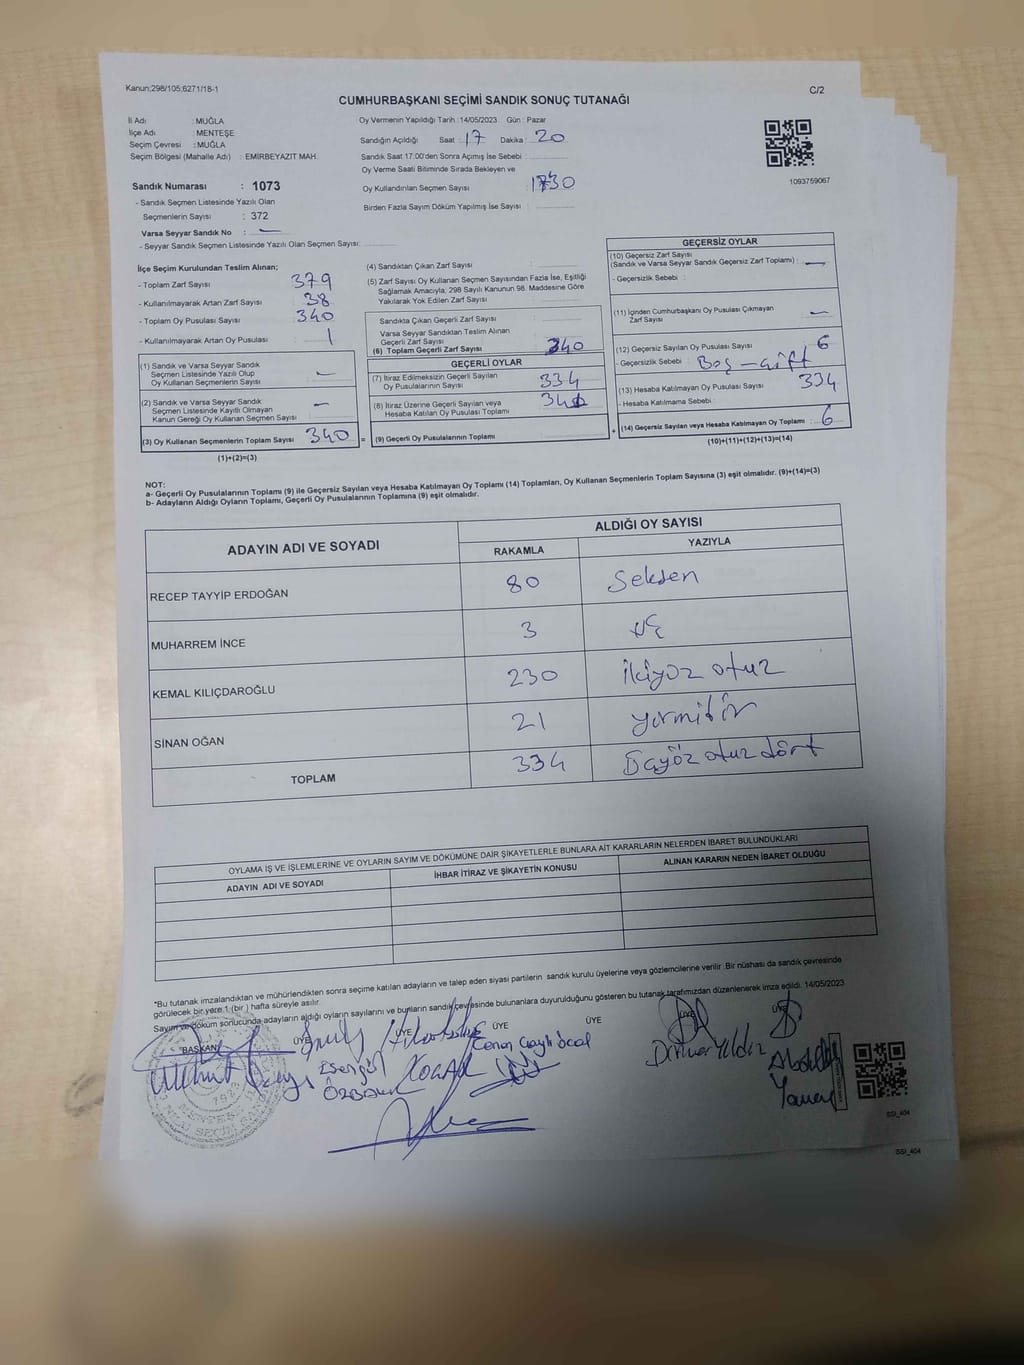 Kanun;298/105;6271/18-1
C/2
CUMHURBAŞKANI SEÇİMİ SANDIK SONUÇ TUTANAĞI
İl Adı : MUĞLA
İlçe Adı : MENTEŞE
Seçim Çevresi : MUĞLA
Seçim Bölgesi (Mahalle Adı) : EMİRBEYAZIT MAH.
Sandık Numarası : 1073
- Sandık Seçmen Listesinde Yazılı Olan
Seçmenlerin Sayısı : 372
Varsa Seyyar Sandık No : —
- Seyyar Sandık Seçmen Listesinde Yazılı Olan Seçmen Sayısı:
Oy Vermenin Yapıldığı Tarih :14/05/2023 Gün : Pazar
Sandığın Açıldığı Saat : 17 Dakika : 20
Sandık Saat 17:00'den Sonra Açımış İse Sebebi :
Oy Verme Saati Bitiminde Sırada Bekleyen ve
Oy Kullandırılan Seçmen Sayısı :
Birden Fazla Sayım Döküm Yapılmış İse Sayısı :
1093759067
İlçe Seçim Kurulundan Teslim Alınan;
- Toplam Zarf Sayısı : 379
- Kullanılmayarak Artan Zarf Sayısı : 38
- Toplam Oy Pusulası Sayısı : 340
- Kullanılmayarak Artan Oy Pusulası : 1
(1) Sandık ve Varsa Seyyar Sandık
Seçmen Listesinde Yazılı Olup
Oy Kullanan Seçmenlerin Sayısı : —
(2) Sandık ve Varsa Seyyar Sandık
Seçmen Listesinde Kayıtlı Olmayan
Kanun Gereği Oy Kullanan Seçmen Sayısı : —
(3) Oy Kullanan Seçmenlerin Toplam Sayısı : 340
(1)+(2)=(3)
(4) Sandıktan Çıkan Zarf Sayısı :
(5) Zarf Sayısı Oy Kullanan Seçmen Sayısından Fazla İse, Eşitliği
Sağlamak Amacıyla; 298 Sayılı Kanunun 98. Maddesine Göre
Yakılarak Yok Edilen Zarf Sayısı :
Sandıkta Çıkan Geçerli Zarf Sayısı :
Varsa Seyyar Sandıktan Teslim Alınan
Geçerli Zarf Sayısı :
(6) Toplam Geçerli Zarf Sayısı : 340
GEÇERLİ OYLAR
(7) İtiraz Edilmeksizin Geçerli Sayılan
Oy Pusulalarının Sayısı : 334
(8) İtiraz Üzerine Geçerli Sayılan veya
Hesaba Katılan Oy Pusulası Toplamı :
= (9) Geçerli Oy Pusulalarının Toplamı :
GEÇERSİZ OYLAR
(10) Geçersiz Zarf Sayısı
(Sandık ve Varsa Seyyar Sandık Geçersiz Zarf Toplamı) : —
- Geçersizlik Sebebi :
(11) İçinden Cumhurbaşkanı Oy Pusulası Çıkmayan
Zarf Sayısı : —
(12) Geçersiz Sayılan Oy Pusulası Sayısı : 6
- Geçersizlik Sebebi : Boş – çift
(13) Hesaba Katılmayan Oy Pusulası Sayısı : 334
- Hesaba Katılmama Sebebi :
+ (14) Geçersiz Sayılan veya Hesaba Katılmayan Oy Toplamı : 6
(10)+(11)+(12)+(13)=(14)
NOT:
a- Geçerli Oy Pusulalarının Toplamı (9) ile Geçersiz Sayılan veya Hesaba Katılmayan Oy Toplamı (14) Toplamları, Oy Kullanan Seçmenlerin Toplam Sayısına (3) eşit olmalıdır. (9)+(14)=(3)
b- Adayların Aldığı Oyların Toplamı, Geçerli Oy Pusulalarının Toplamına (9) eşit olmalıdır.
ADAYIN ADI VE SOYADI
ALDIĞI OY SAYISI
RAKAMLA YAZIYLA
RECEP TAYYİP ERDOĞAN 80 Seksen
MUHARREM İNCE 3 üç
KEMAL KILIÇDAROĞLU 230 ikiyüz otuz
SİNAN OĞAN 21 yirmibir
TOPLAM 334 üçyüz otuz dört
OYLAMA İŞ VE İŞLEMLERİNE VE OYLARIN SAYIM VE DÖKÜMÜNE DAİR ŞİKAYETLERLE BUNLARA AİT KARARLARIN NELERDEN İBARET BULUNDUKLARI
ADAYIN ADI VE SOYADI İHBAR İTİRAZ VE ŞİKAYETİN KONUSU ALINAN KARARIN NEDEN İBARET OLDUĞU
*Bu tutanak imzalandıktan ve mühürlendikten sonra seçime katılan adayların ve talep eden siyasi partilerin sandık kurulu üyelerine veya gözlemcilerine verilir .Bir nüshası da sandık çevresinde
görülecek bir yere 1 (bir ) hafta süreyle asılır.
Sayım ve döküm sonucunda adayların aldığı oyların sayılarını ve bunların sandık çevresinde bulunanlara duyurulduğunu gösteren bu tutanak tarafımızdan düzenlenerek imza edildi. 14/05/2023
BAŞKAN ÜYE ÜYE ÜYE ÜYE ÜYE ÜYE
SSI_404
SSI_404